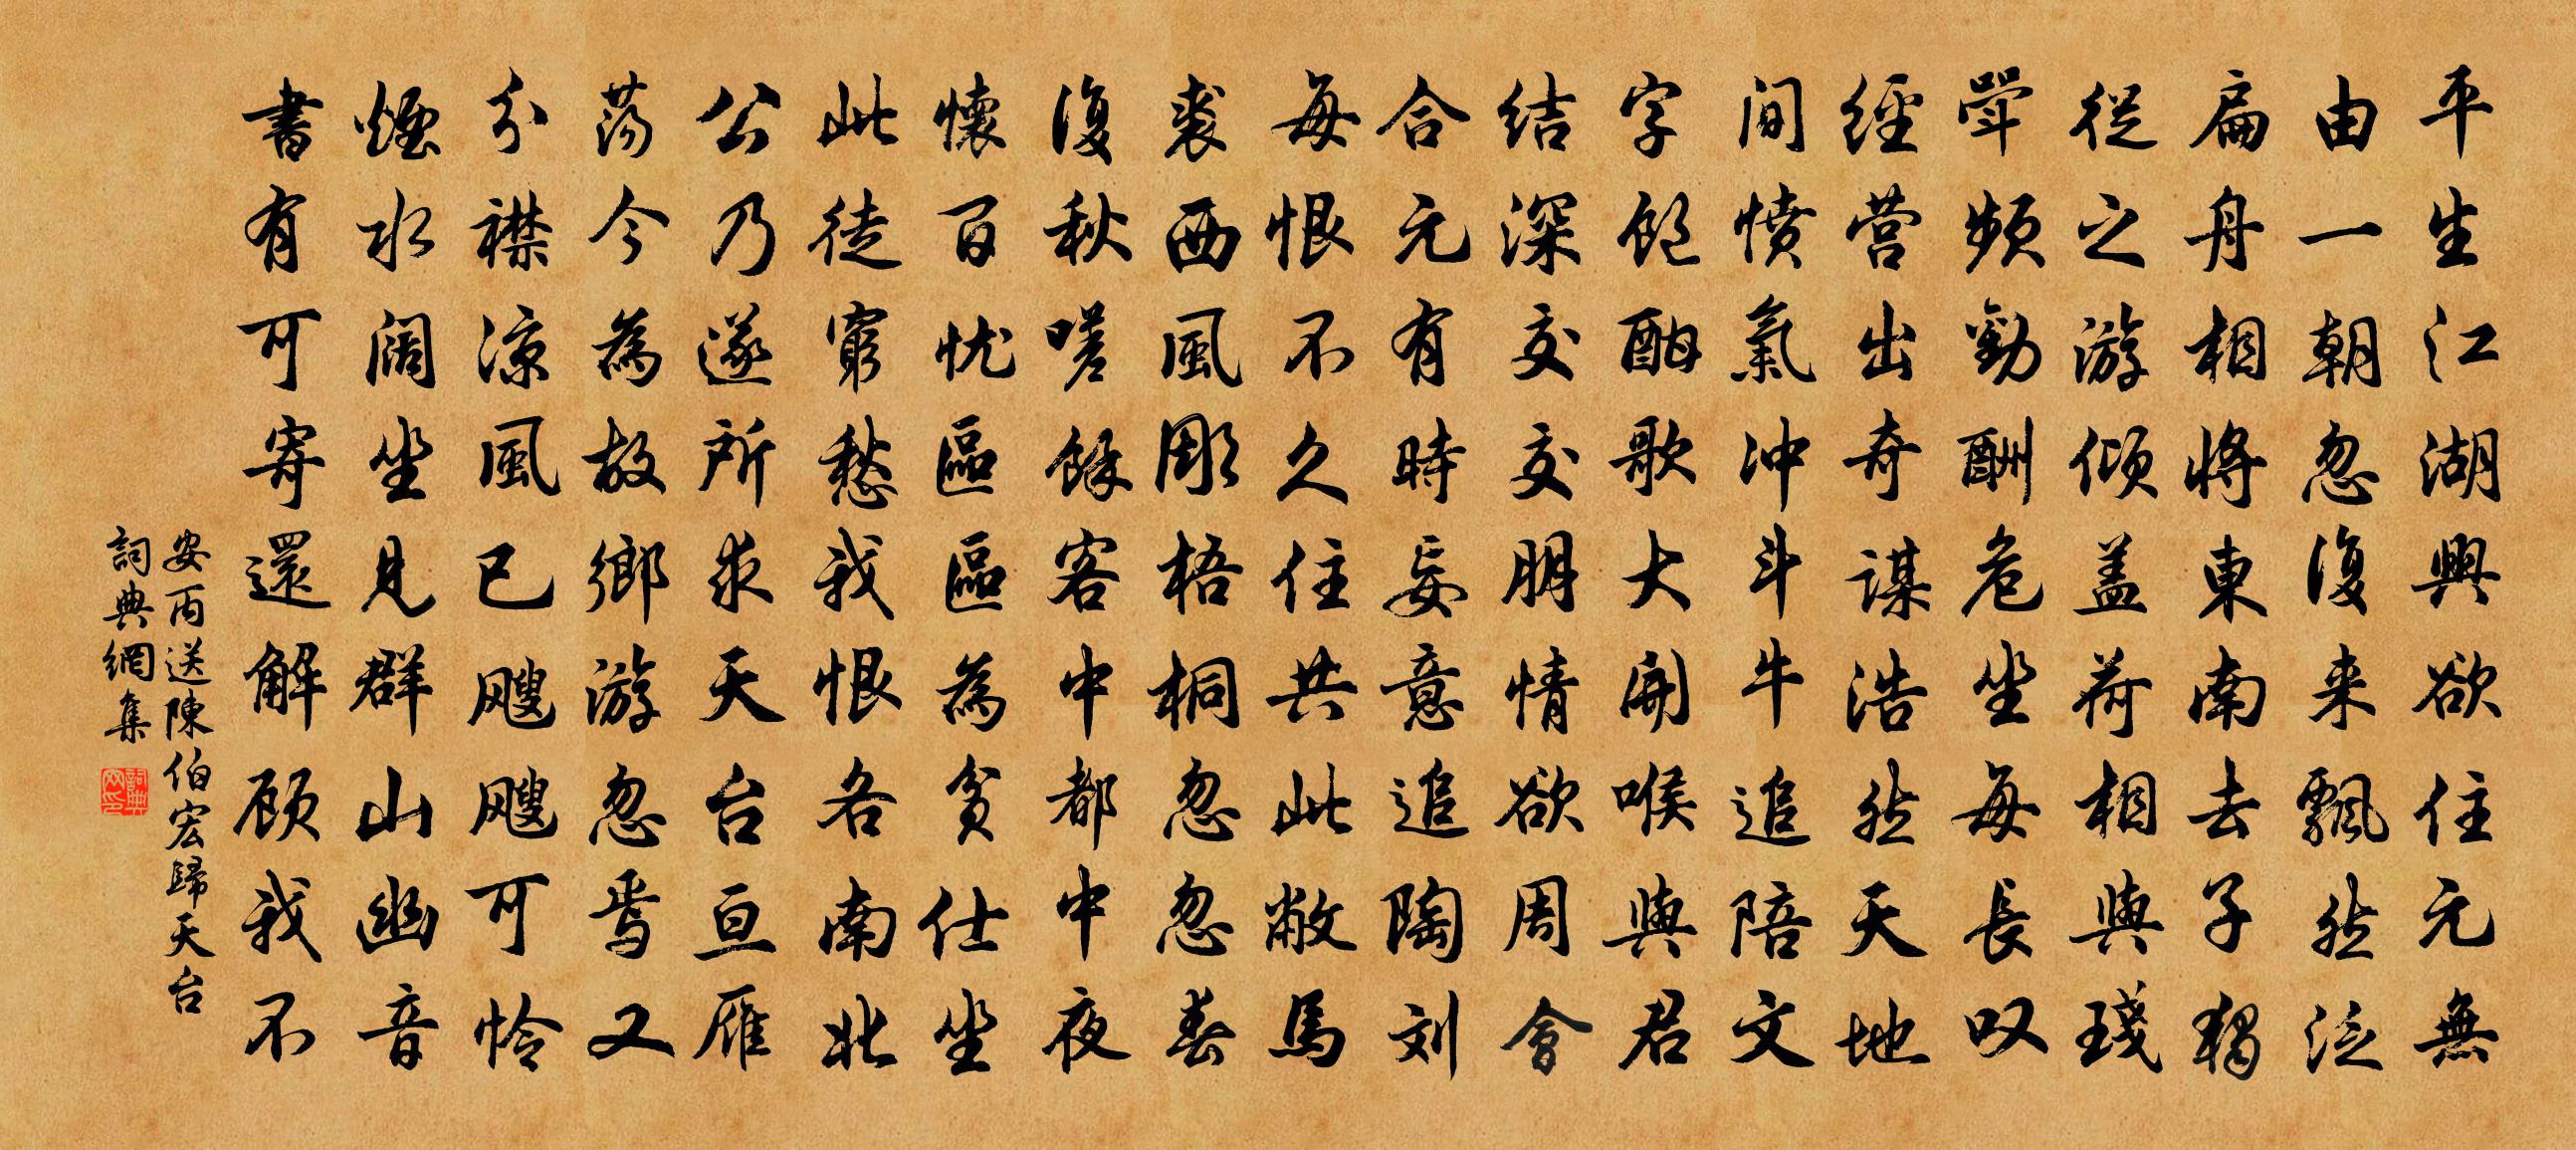 平生江湖興欲住元無
由一朝忽復来飄然泛
扁舟相將東南去子獨
從之游傾盖荷相與琖
斝頻勸酬危坐每長叹
經营出奇谋浩然天地
间愤氣冲斗牛追陪文
字飽酣歌大開喉與君
结深交交朋情欲周會
合元有時妄意追陶刘
每恨不久住共此敝馬
裘西風彫梧桐忽忽春
復秋嗟餘客中都中夜
懷百忧區區為貧仕坐
此徒窮愁我恨各南北
公乃遂所求天台亘雁
荡今為故鄉游忽焉又
分襟凉風已飕飕可怜
烟水阔坐見群山幽音
書有可寄還解顾我不
安丙送陳伯宏歸天台
詞典網集
詞典网印